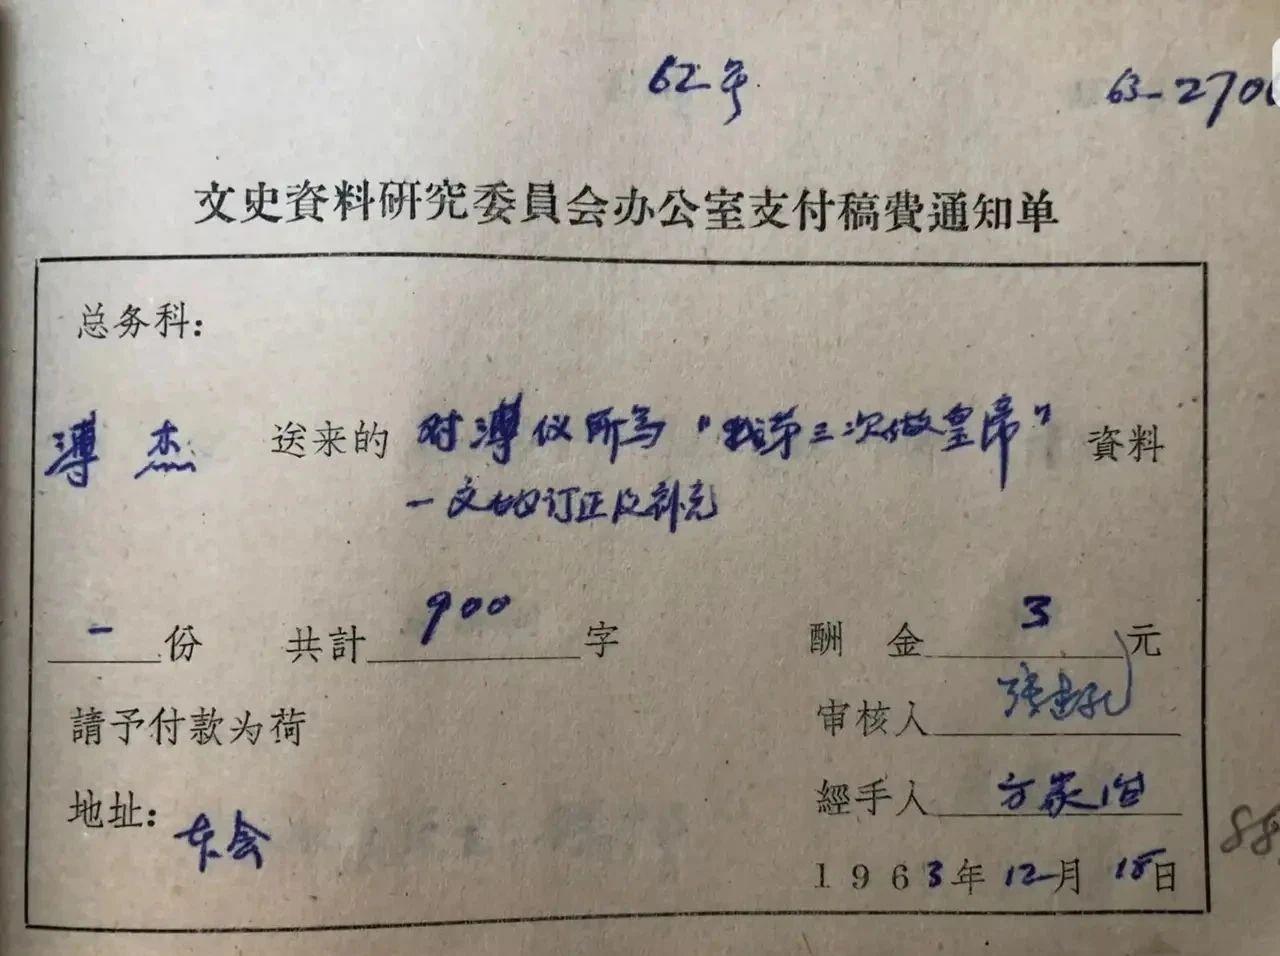 62年
63-270
文史資料研究委員会办公室支付稿費通知单
总务科：
溥杰 送来的 对溥仪所写“我第三次做皇帝” 資料
一文的订正及补充
一 份 共計 900 字 酬金 3 元
請予付款为荷 审核人
地址： 本会 經手人 方家
1963年12月18日
88